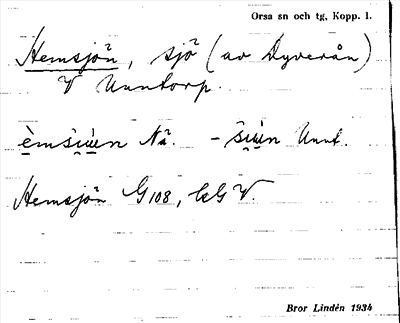 Orsa sn och tg, Kopp. l.
Hemsjön, sjö (av Dyverån)
V Unntorp.
èmšɯ̀n Nä. - šɯ̀n Unnt.
Hemsjön G108, kG V.
Bror Lindén 1934